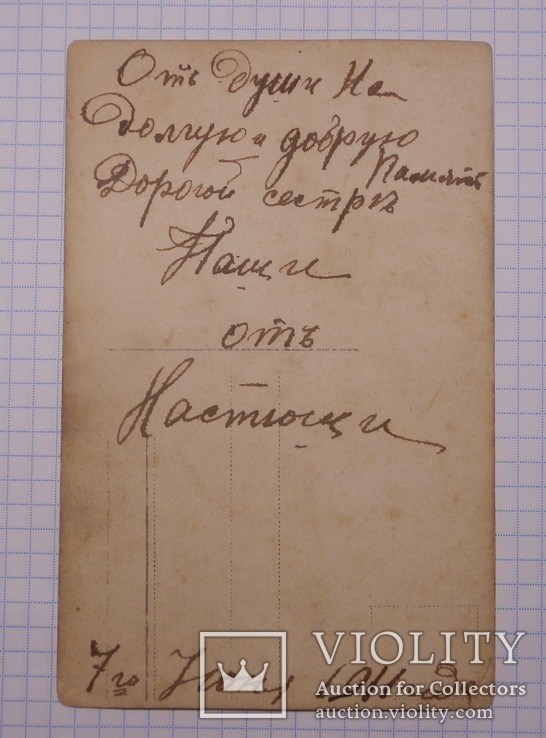 Отъ души На
Долгую и добрую
Память
Дорогой сестрѣ
Наши
отъ
Настюши
7го
VIOLITY
Auction for Collectors
auction.violity.com